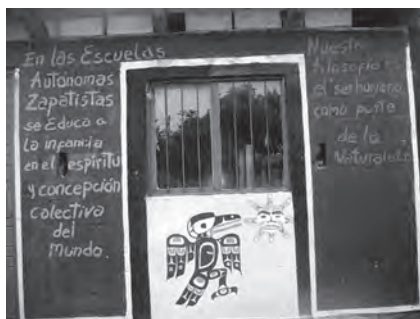 En las Escuelas
Autónomas
Zapatistas
se Educa a
la infancia
en el espíritu
y concepción
colectiva
del
mundo.
Nuestra
filosofía es
el ser humano
como parte
de la
Naturaleza